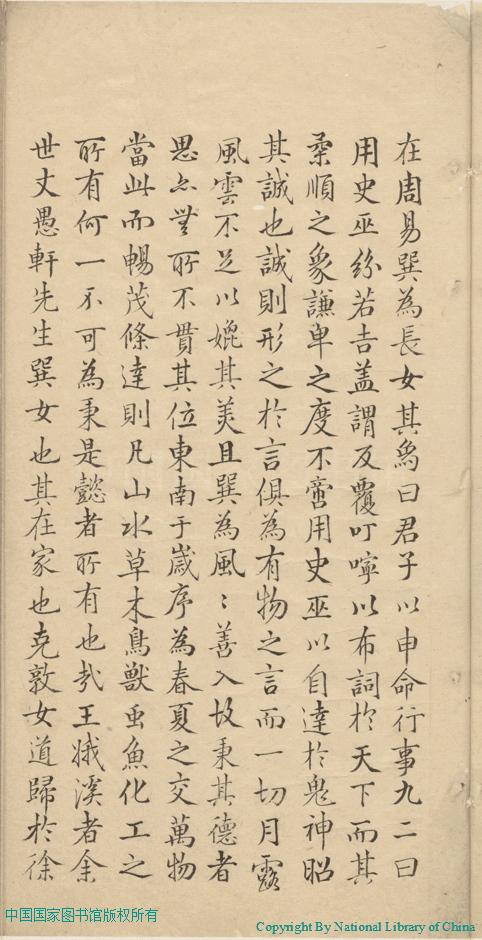 在周易巽為長女其象曰君子以申命行事九二曰
用史巫紛若吉盖謂反覆叮嚀以布詞於天下而其
柔順之象謙卑之度不啻用史巫以自達於鬼神昭
其誠也誠則形之於言俱為有物之言而一切月露
風雲不足以媲其美且巽為風〻善入故秉其德者
思亦無所不貫其位東南于歲序為春夏之交萬物
當此而暢茂條達則凡山水草木鳥獸虫魚化工之
所有何一不可為秉是懿者所有也哉王娥溪者余
世丈愚軒先生巽女也其在家也克敦女道歸於徐
中国国家图书馆版权所有
Copyright By National Library of China